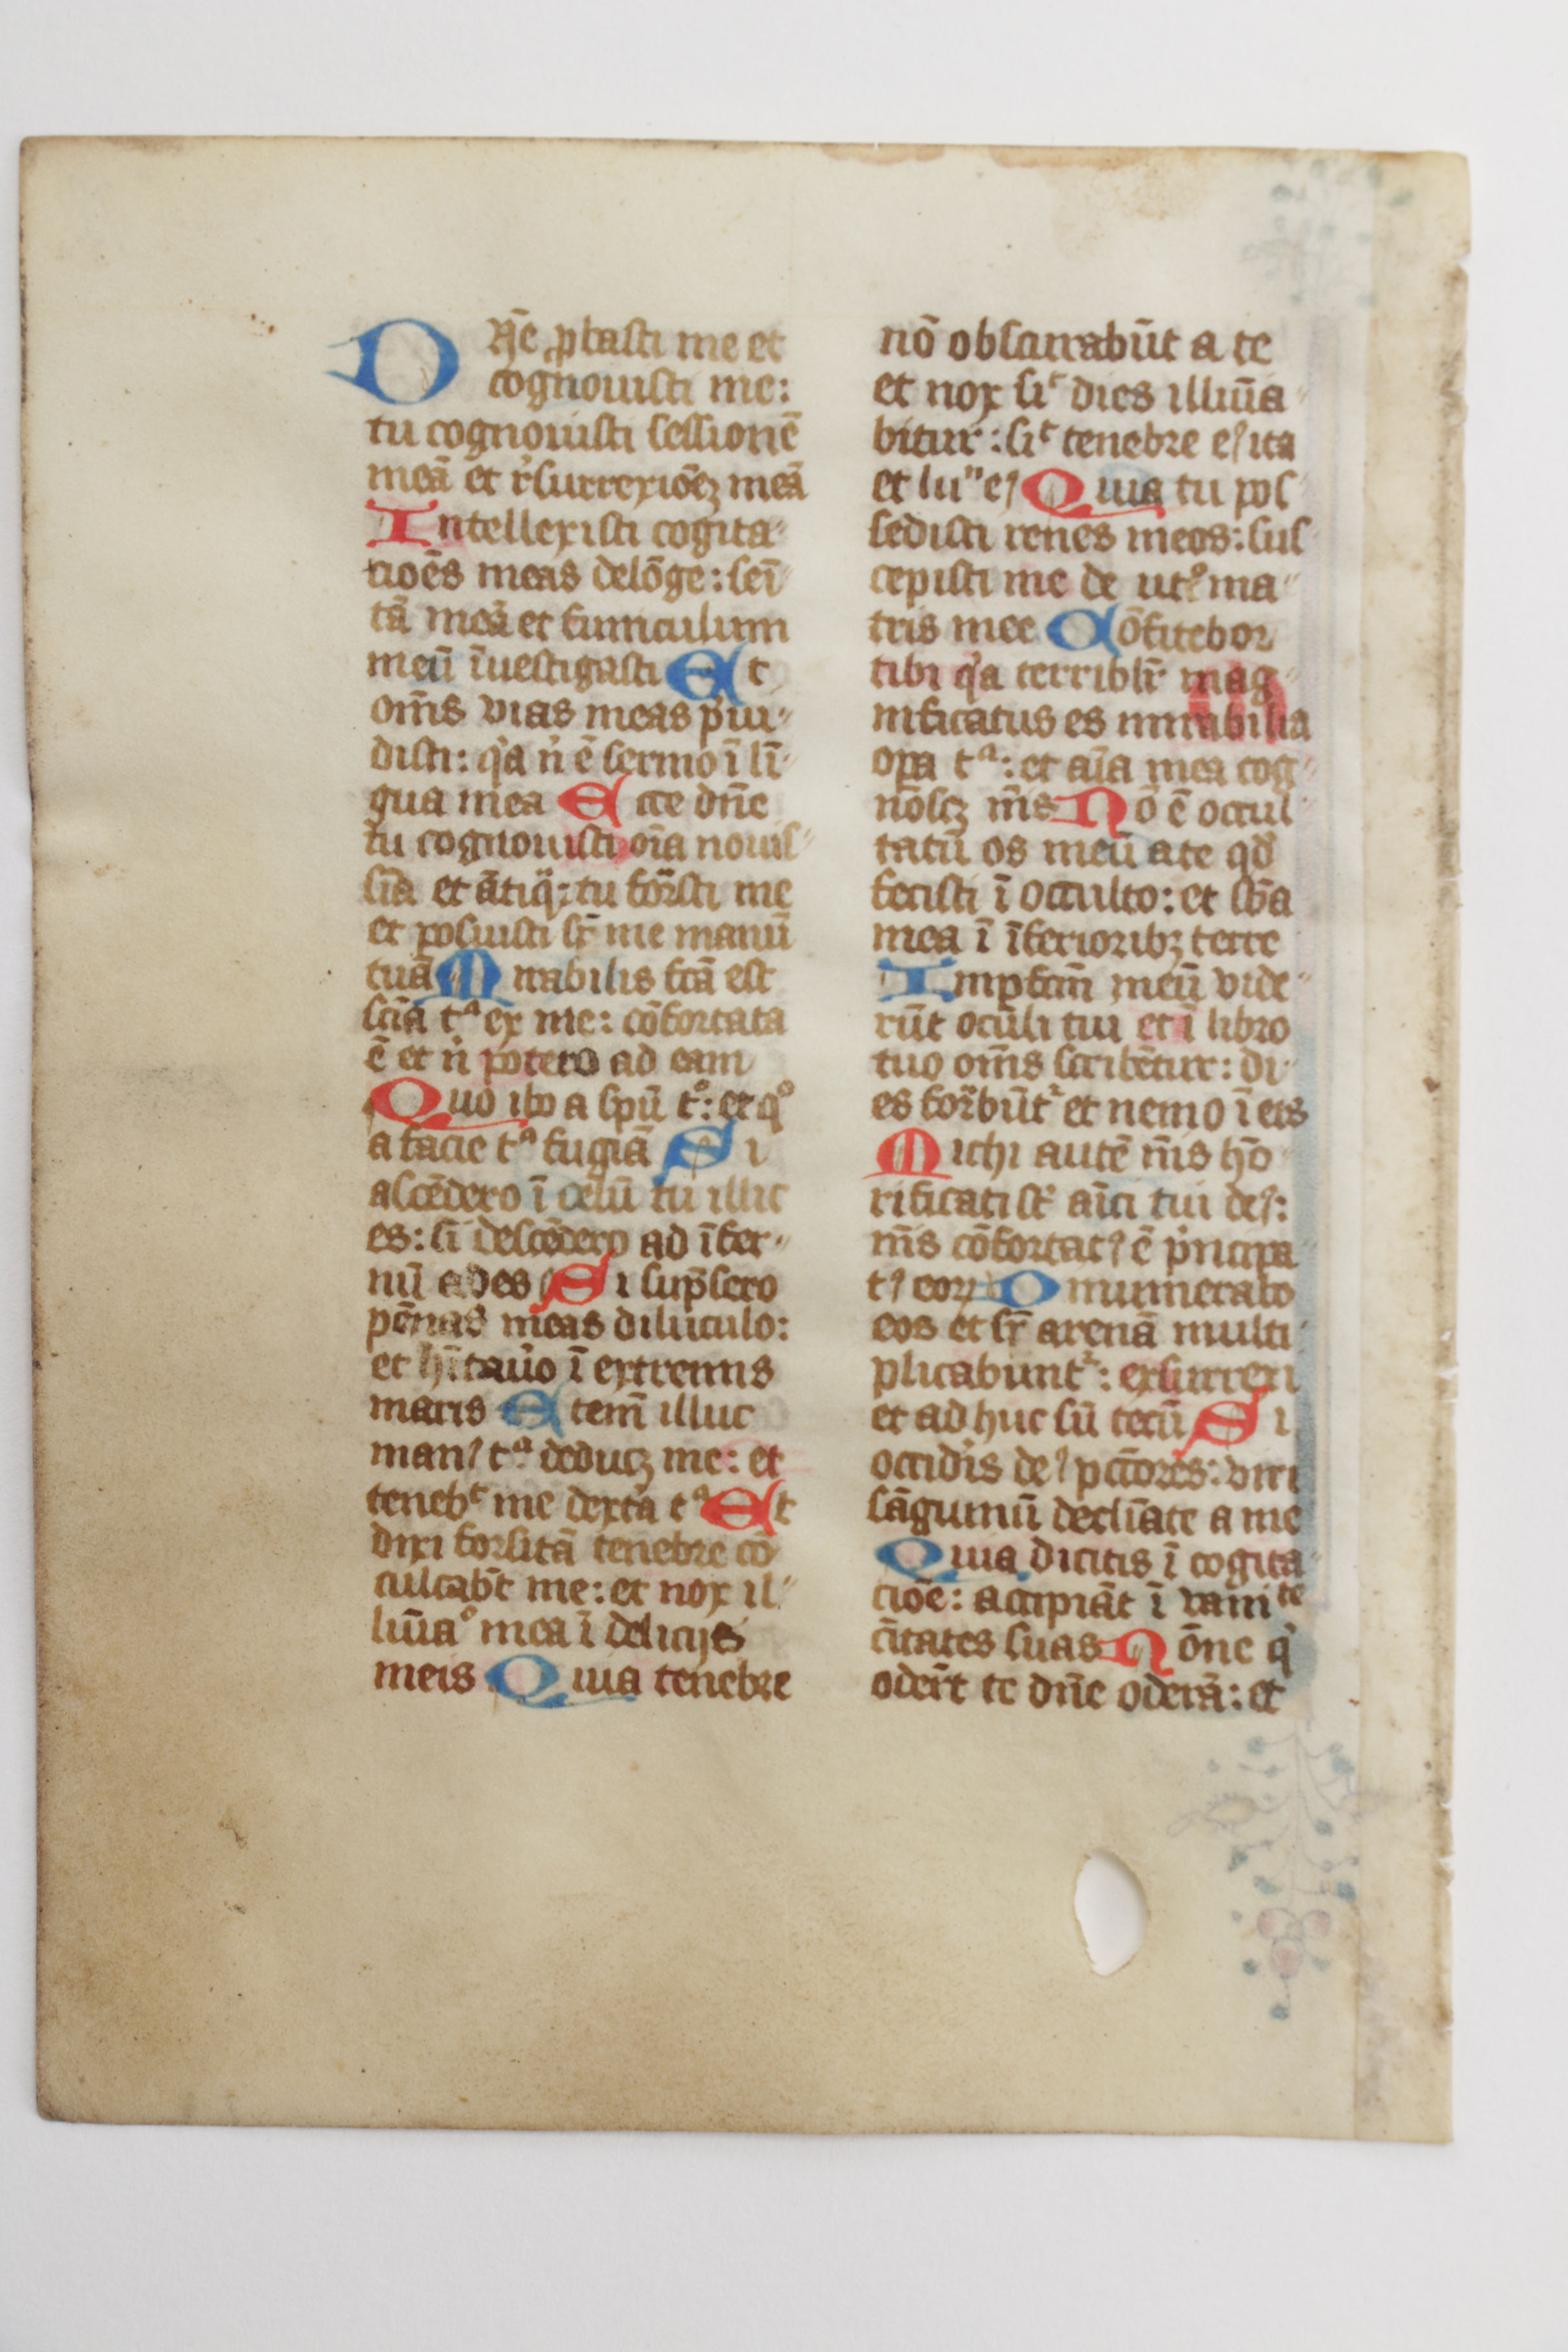 Dn̄e ꝓbasti me et
cognouisti me:
tu cognouisti sessionē
meā et r̉surrexiōeꝫ meā
Intellexisti cogita
tioēs meas delōge: semī
tā meā et funiculum
meū īuestigasti Et
om̄s vias meas p̉ui
disti: q̉a n̉ ē sermo ī lī
gua mea Ecce dn̄e
tu cognouisti oīa nouis
sīa et ātiq̈: tu for̈sti me
et posuisti sr̄ me manū
tuā Mirabilis fc̄a est
scīa tᵃ ex me: cōfortata
ē et n̉ potero ad eam
Quo ibo a spū tᵒ: et qᵒ
a facie tᵃ fugiā Si
ascēdero ī celū tu illic
es: si descēdero ad īfer
nū ades Si sūpsero
pēnas meas diluculo:
et hītaủo ī extremis
maris Etem̄ illuc
manꝰ tᵃ deducꝫ me: et
tenebᵗ me dext̉a tᵃ Et
dixi forsitā tenebre cō
culcabt̄ me: et nox il
luīaᵒ mea ī delicijs
meis Quia tenebre
nō obscurabūt̄ a te
et nox siᶜ dies illuīa
bitur: siᶜ tenebre eꝰ ita
et luⁿ eꝰ Quia tu pos
sedisti renes meos: sus
cepisti me de ut̉o ma
tris mee Cōfitebor
tibi q̉a terriblr̄ mag
nificatus es mirabilia
oꝑa tᵃ: et aīa mea cog
nōscꝫ nīs Nō ē occul
tatū os meū a te qd̄
fecisti ī occulto: et sb̄a
mea ī īferioribꝫ terre
Imꝑfcm̄ meū vide
rūt oculi tui et ī libro
tuo om̄s scribētur: di
es for̄būtʳ et nemo ī eis
Michi autē nīs hō
rificati st̄ aīci tui deꝰ:
nīs cōfortatꝰ ē p̉ncipa
tꝰ eoꝝ Dinumerabo
eos et sr̄ arenā multi
plicabuntʳ: exsurrexi
et ad huc sū tecū Si
occid̉is deꝰ pctōres: viri
sāguinū declīate a me
Quia dicitis ī cogita
tiōe: accipiāt ī vaniᵗᵉ
cītates suas Nōne q̉
oder̄t te dn̄e oderā: et